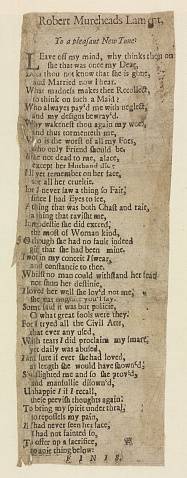 Robert Mureheads Lament.
To a pleasant New Tune:
LEave off my mind, why thinks thou on
she that was once my Dear,
thou know that she is gone,
and Married now I hear.
What madness makes thee Recollect,
to think on such a Maid;
Who always payd me with neglect,
and my designs betray'd.
Why wakenest thou again my woe,
and thus tormentest me,
Who is the worst of all my Foes,
who only Friend should be
not dead to me, alace,
except her Husband die;
I'll yet remember on her face,
for all her crueltie.
For I never saw a thing so Fair,
since I had Eyes to see,
A thing that was both Chast and rare,
a thing that ravisht me,
In modestie she did exceed,
the most of Woman kind,
O though she had no fault indeed
that she had been mine.
I wot in my conceit I swear,
and constantie to thee.
What so man could withstand her
not shun her destinie,
I loved her well she lov'd not me,
she was you'l say.
Some said it was but policie,
O what great fools were they.
For I tryed all the Civil Arts,
that ever any used,
With tears I did proclaim my smart,
yet daily was abused,
I am sure if ever she had loved,
at length she would have
slighted me and so she prov'd,
and manfullie disown'd,
Unhappie I if I recall,
these peevish thoughts again:
To bring my spirit under thral,
to repossess my pain,
If I had never seen her face,
I had not fainted so,
To offer up a sacrifice,
to anie thing below:
FINIS.